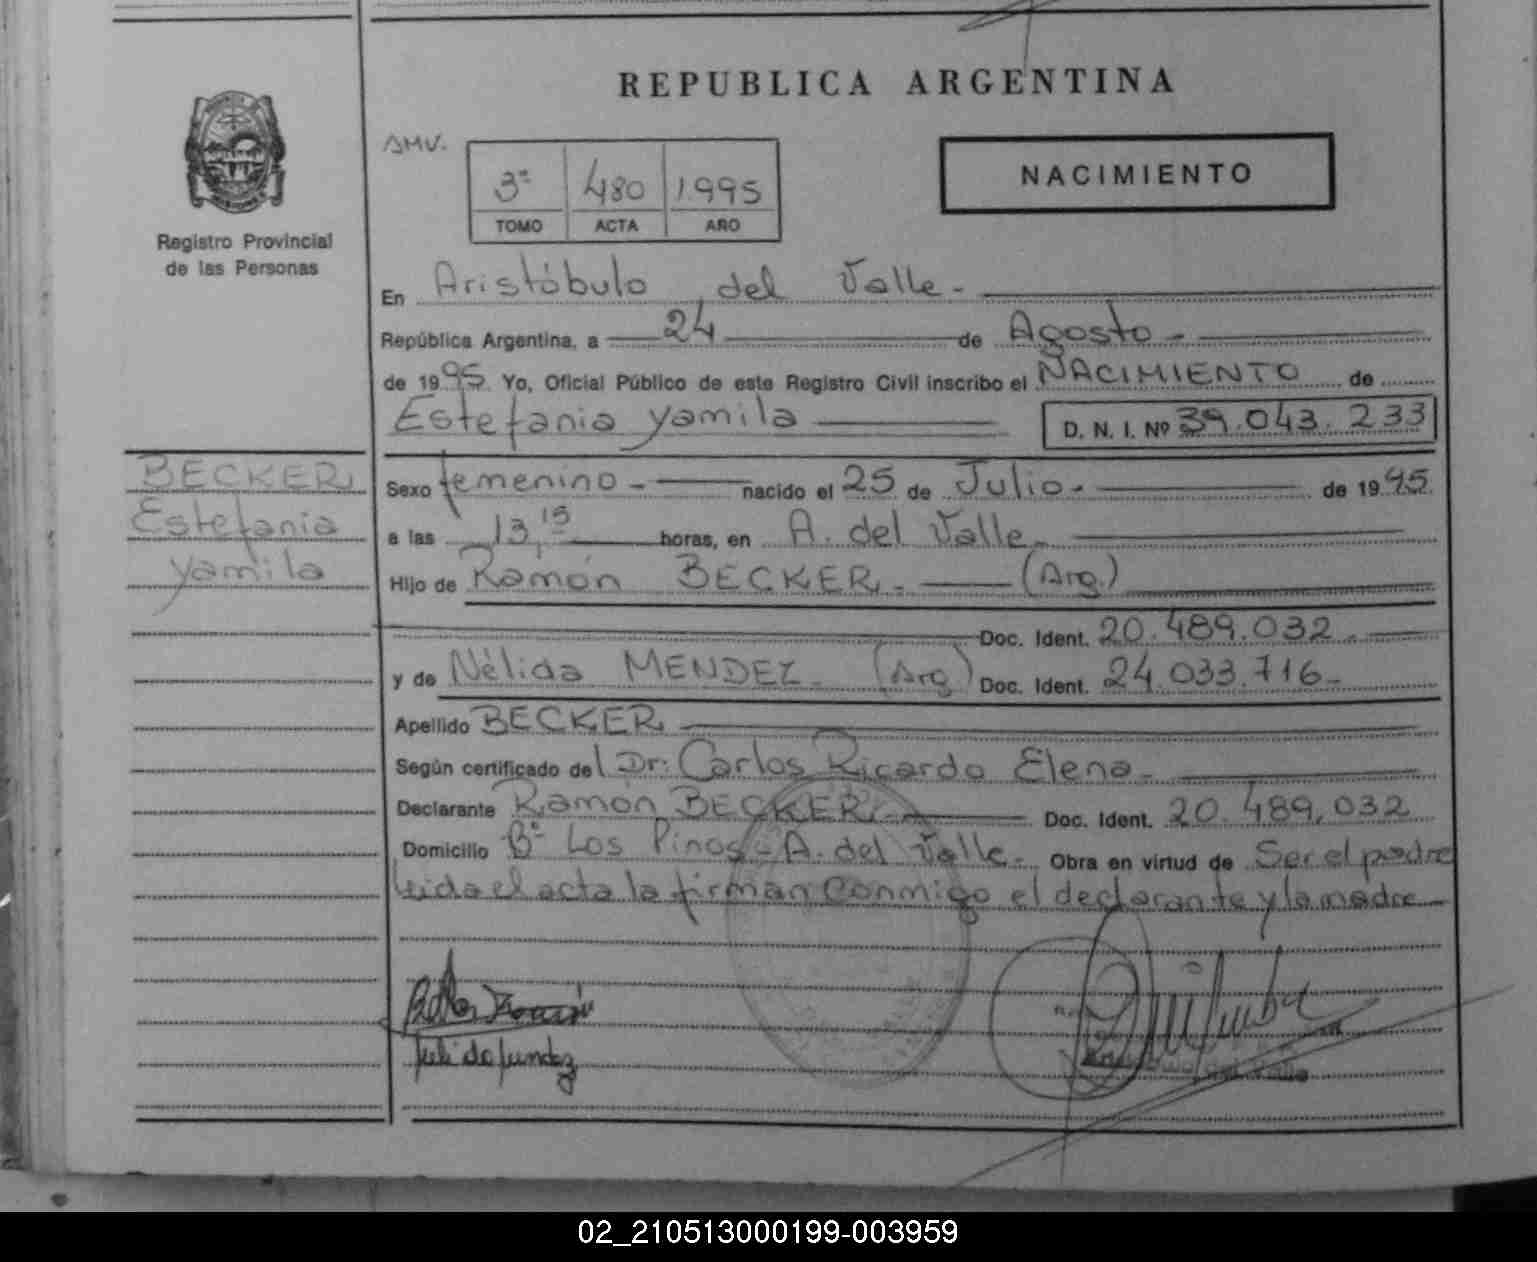 REPUBLICA ARGENTINA
Registro Provincial
de las Personas
AMV.
3º 480 1.995
TOMO ACTA AÑO
NACIMIENTO
En Aristóbulo del Valle.-
República Argentina, a 24 de Agosto.-
de 1995. Yo, Oficial Público de este Registro Civil inscribo el NACIMIENTO de
Estefania yamila D. N. I. Nº 39.043.233
BECKER
Estefania
yamila
Sexo femenino.- nacido el 25 de Julio.- de 1995.
a las 13,15 horas, en A. del Valle.-
Hijo de Ramón BECKER.- (Arg.)
Doc. Ident. 20.489.032.-
y de Nélida MENDEZ.- (Arg) Doc. Ident. 24.033.716.-
Apellido BECKER
Según certificado del Dr: Carlos Ricardo Elena.-
Declarante Ramón BECKER.- Doc. Ident. 20.489.032
Domicilio Bº Los Pinos - A. del Valle.- Obra en virtud de Ser el padre
Leida el acta la firman conmigo el declarante y la madre
del Valle
02_210513000199-003959